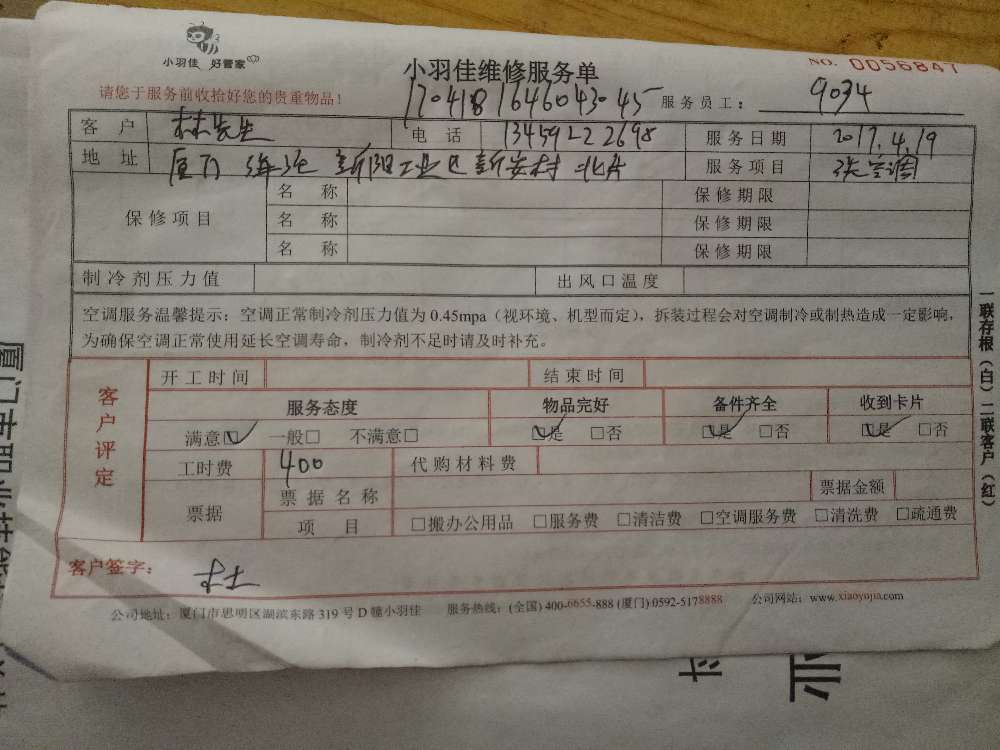 小羽佳 好管家
小羽佳维修服务单
NO. 0056847
请您于服务前收拾好您的贵重物品！
1704181646043045
服务员工： 9034
客户 林先生 电话 13459222698 服务日期 2017.4.19
地址 厦门 海沧 新阳工业区新安村 北片 服务项目 装空调
保修项目 名称 保修期限
名称 保修期限
名称 保修期限
制冷剂压力值 出风口温度
空调服务温馨提示：空调正常制冷剂压力值为 0.45mpa（视环境、机型而定），拆装过程会对空调制冷或制热造成一定影响，
为确保空调正常使用延长空调寿命，制冷剂不足时请及时补充。
客户评定
开工时间 结束时间
服务态度 物品完好 备件齐全 收到卡片
满意☑ 一般□ 不满意□ ☑是 □否 ☑是 □否 ☑是 □否
工时费 400 代购材料费
票据 票据名称 票据金额
项目 □搬办公用品 □服务费 □清洁费 □空调服务费 □清洗费 □疏通费
客户签字： 林
公司地址：厦门市思明区湖滨东路 319 号 D 幢小羽佳 服务热线：(全国) 400-6655-888 (厦门) 0592-5178888 公司网站：www.xiaoyujia.com
一联存根（白）二联客户（红）
厦门市职业